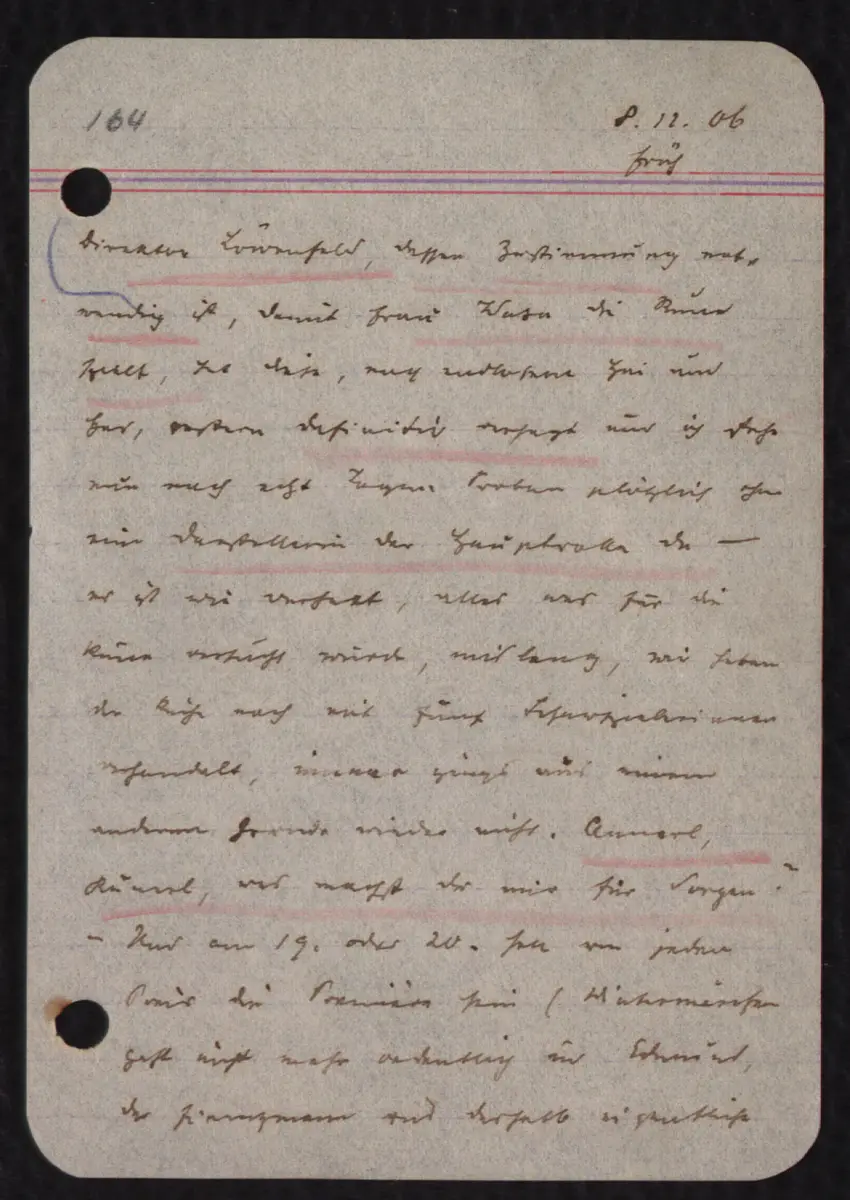 164
8. 12. 06
früh
Direktor Löwenfeld, dessen Zustimmung not-
wendig ist, damit Frau Wasa die Rune
spielt, hat diese, nach endlosem Hin und
Her, gestern definitiv versagt und ich stehe
nun nach acht Tagen Proben plötzlich ohne
eine Darstellerin der Hauptrolle da —
es ist wie verhext, alles was für die
Rune versucht wurde, mislang, wir haben
der Reihe nach mit fünf Schauspielerinnen
verhandelt, immer gings aus einem
anderen Grunde wieder nicht. Annerl,
Rünerl, was machst du mir für Sorgen?
– Und am 19. oder 20. soll um jeden
Preis die Première sein (Wintermärchen
geht nicht mehr ordentlich und Edmund,
der Finanzmann und deshalb eigentliche